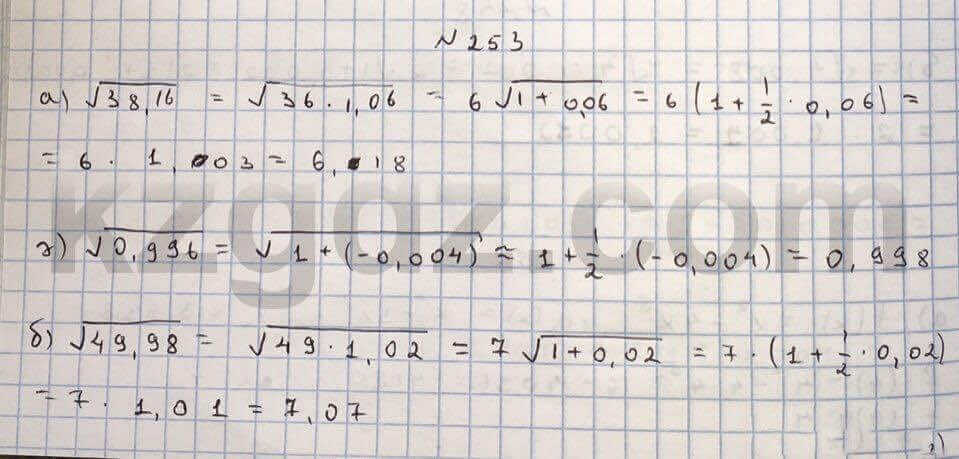 № 253
а) √38,16 = √36 · 1,06 = 6 √1 + 0,06 = 6 (1 + 1/2 · 0,06) =
= 6 · 1,03 = 6,18
г) √0,996 = √1 + (-0,004) ≈ 1 + 1/2 · (-0,004) = 0,998
б) √49,98 = √49 · 1,02 = 7 √1 + 0,02 = 7 · (1 + 1/2 · 0,02)
= 7 · 1,01 = 7,07
kzgdz.com